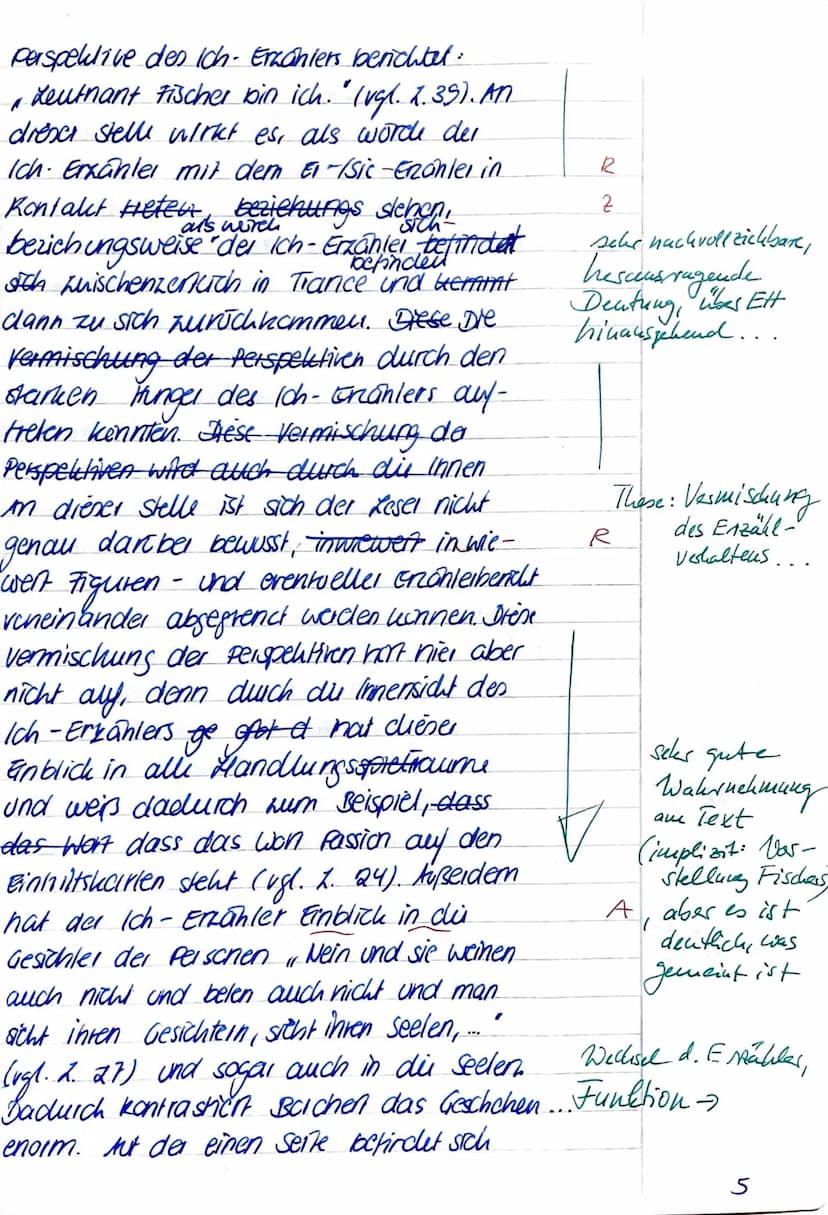 Perspektive des Ich-Erzählers berichtet:
„Leutnant Fischer bin ich." (vgl. Z. 39). An
dieser Stelle wirkt es, als würde der
Ich-Erzähler mit dem Er-/Sie-Erzähler in
R
Kontakt treten, beziehungs stehen,
Z
als würde sich
beziehungsweise der Ich-Erzähler befindet
befinden
sich zwischenzeitlich in Trance und kommt
dann zu sich zurückkommen. Diese Die
sehr nachvollziehbare,
herausragende
Deutung, über EH
hinausgehend...
Vermischung der Perspektiven durch den
starken Hunger des Ich-Erzählers auf-
treten könnten. Diese Vermischung der
Perspektiven wird auch durch die Innen
An dieser Stelle ist sich der Leser nicht
genau darüber bewusst, inwieweit inwie-
R
These: Vermischung
des Erzähl-
verhaltens...
weit Figuren- und eventueller Erzählerbericht
voneinander abgegrenzt werden können. Diese
Vermischung der Perspektiven hört hier aber
nicht auf, denn durch die Innensicht des
Ich-Erzählers ge gibt d hat dieser
Einblick in alle Handlungsspielräume
und weiß dadurch zum Beispiel, dass
das Wort dass das Wort Passion auf den
Einhittskarten steht (vgl. Z. 24). Außerdem
hat der Ich-Erzähler Einblick in die
A
sehr gute
Wahrnehmung
am Text
(implizit: Vor-
stellung Fischers,
aber es ist
deutlich, was
gemeint ist
Gesichter der Personen „Nein und sie weinen
auch nicht und beten auch nicht und man
sieht ihren Gesichtern, sieht ihren Seelen,..."
(vgl. Z. 27) und sogar auch in die Seelen.
Dadurch kontrastiert Borchert das Geschehen
Wechsel d. Erzähler,
...Funktion →
enorm. Auf der einen Seite befindet sich
5